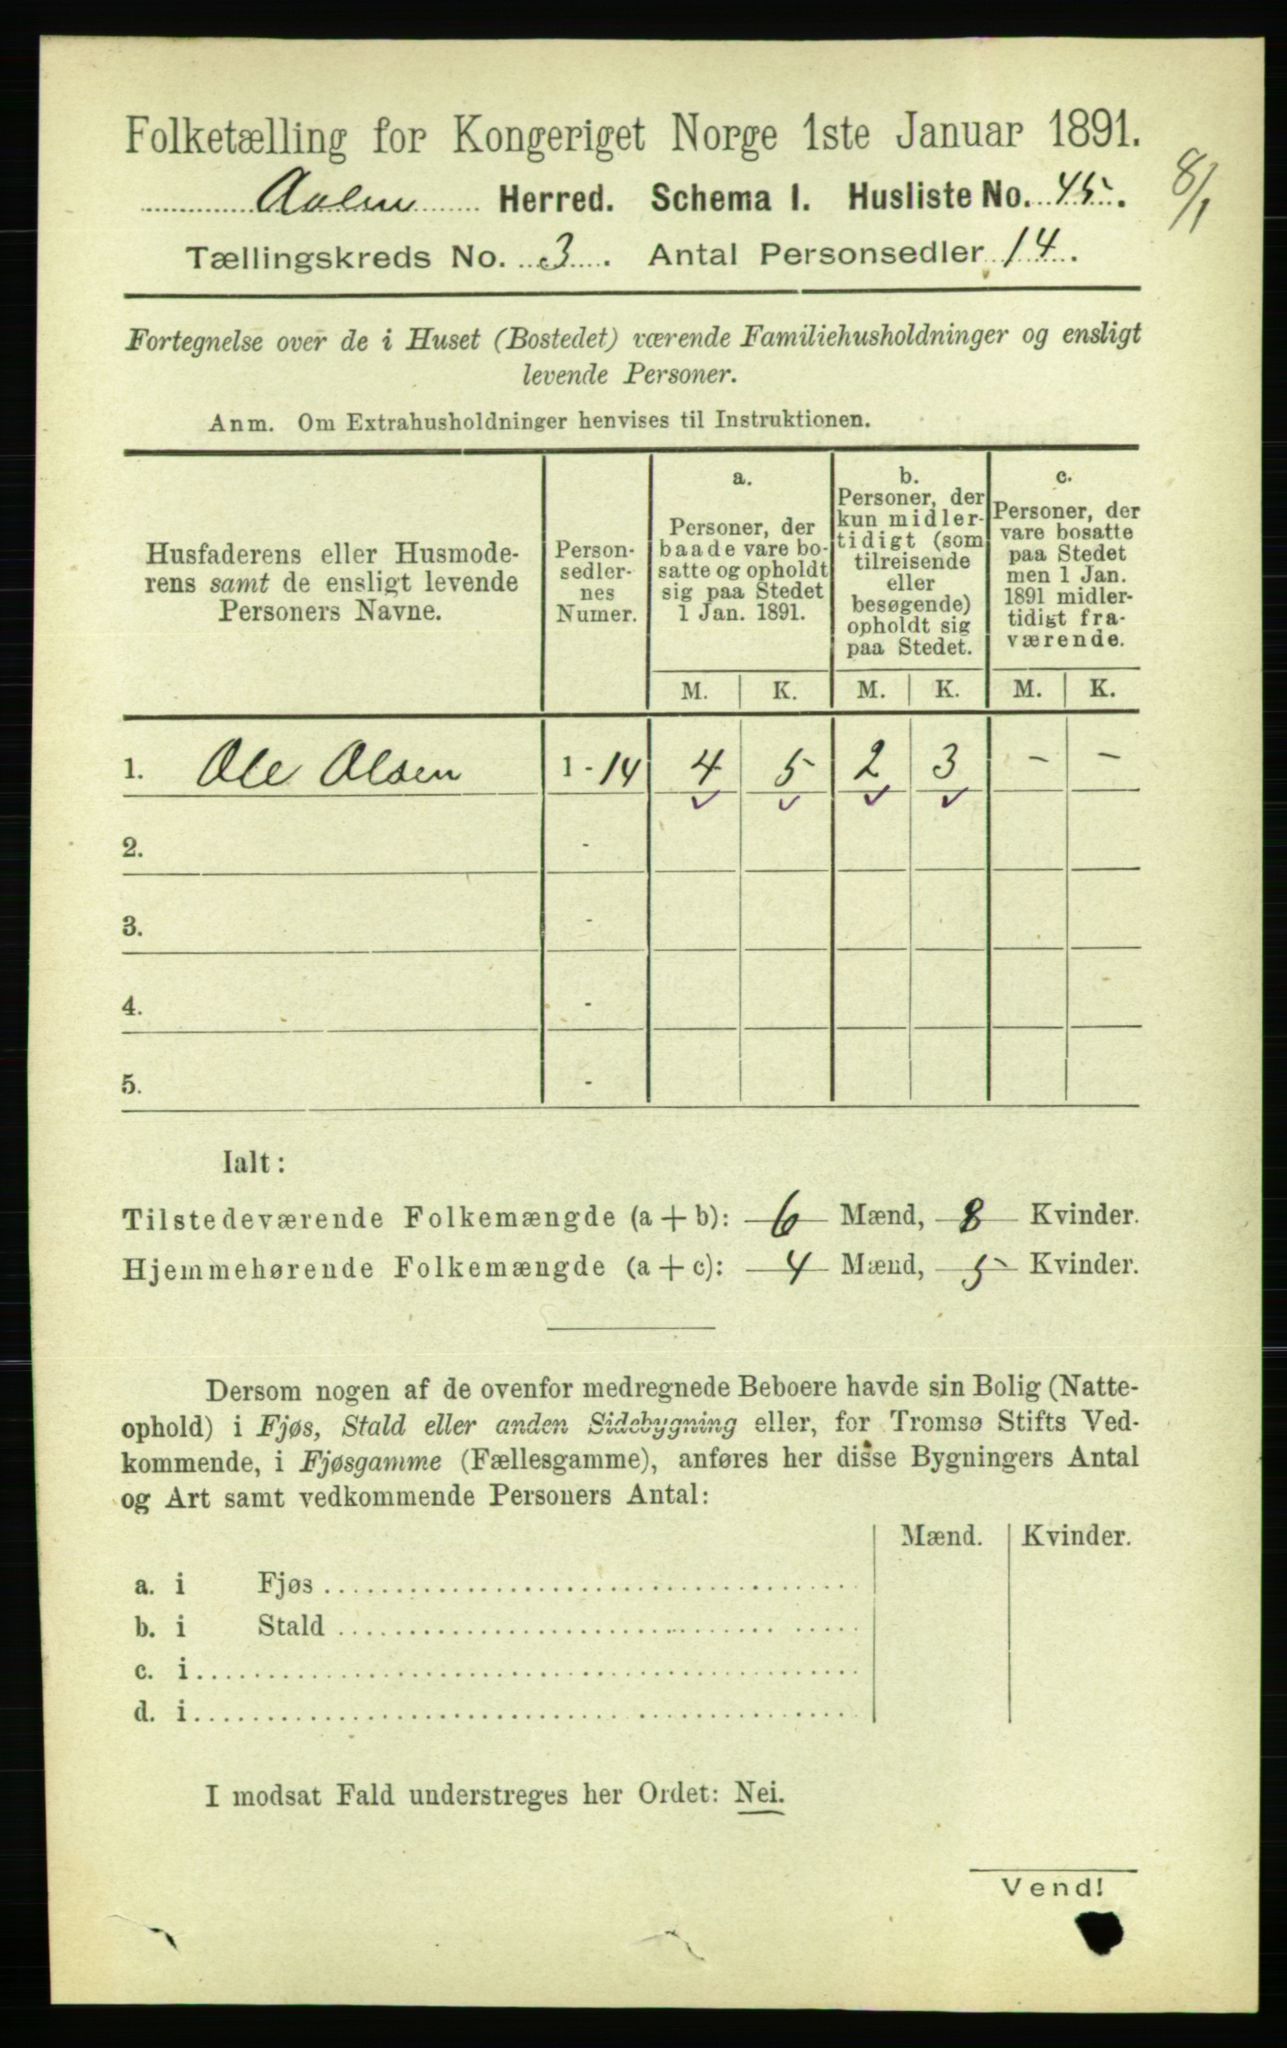 Folketælling for Kongeriget Norge 1ste Januar 1891.
Aalen Herred. Schema 1. Husliste No. 45.
8/1
Tællingskreds No. 3. Antal Personsedler 14.
Fortegnelse over de i Huset (Bostedet) værende Familiehusholdninger og ensligt
levende Personer.
Anm. Om Extrahusholdninger henvises til Instruktionen.
Husfaderens eller Husmode-
rens samt de ensligt levende
Personers Navne.
Person-
sedler-
nes
Numer.
a.
Personer, der
baade vare bo-
satte og opholdt
sig paa Stedet
1 Jan. 1891.
b.
Personer, der
kun midler-
tidigt (som
tilreisende
eller
besøgende)
opholdt sig
paa Stedet.
c.
Personer, der
vare bosatte
paa Stedet
men 1 Jan.
1891 midler-
tidigt fra-
værende.
M. K. M. K. M. K.
1. Ole Olsen 1 - 14 4 5 2 3 - -
2. -
3. -
4. -
5. -
Ialt:
Tilstedeværende Folkemængde (a + b): 6 Mænd, 8 Kvinder.
Hjemmehørende Folkemængde (a + c): 4 Mænd, 5 Kvinder.
Dersom nogen af de ovenfor medregnede Beboere havde sin Bolig (Natte-
ophold) i Fjøs, Stald eller anden Sidebygning eller, for Tromsø Stifts Ved-
kommende, i Fjøsgamme (Fællesgamme), anføres her disse Bygningers Antal
og Art samt vedkommende Personers Antal:
Mænd. Kvinder.
a. i Fjøs
b. i Stald
c. i
d. i
I modsat Fald understreges her Ordet: Nei.
Vend!